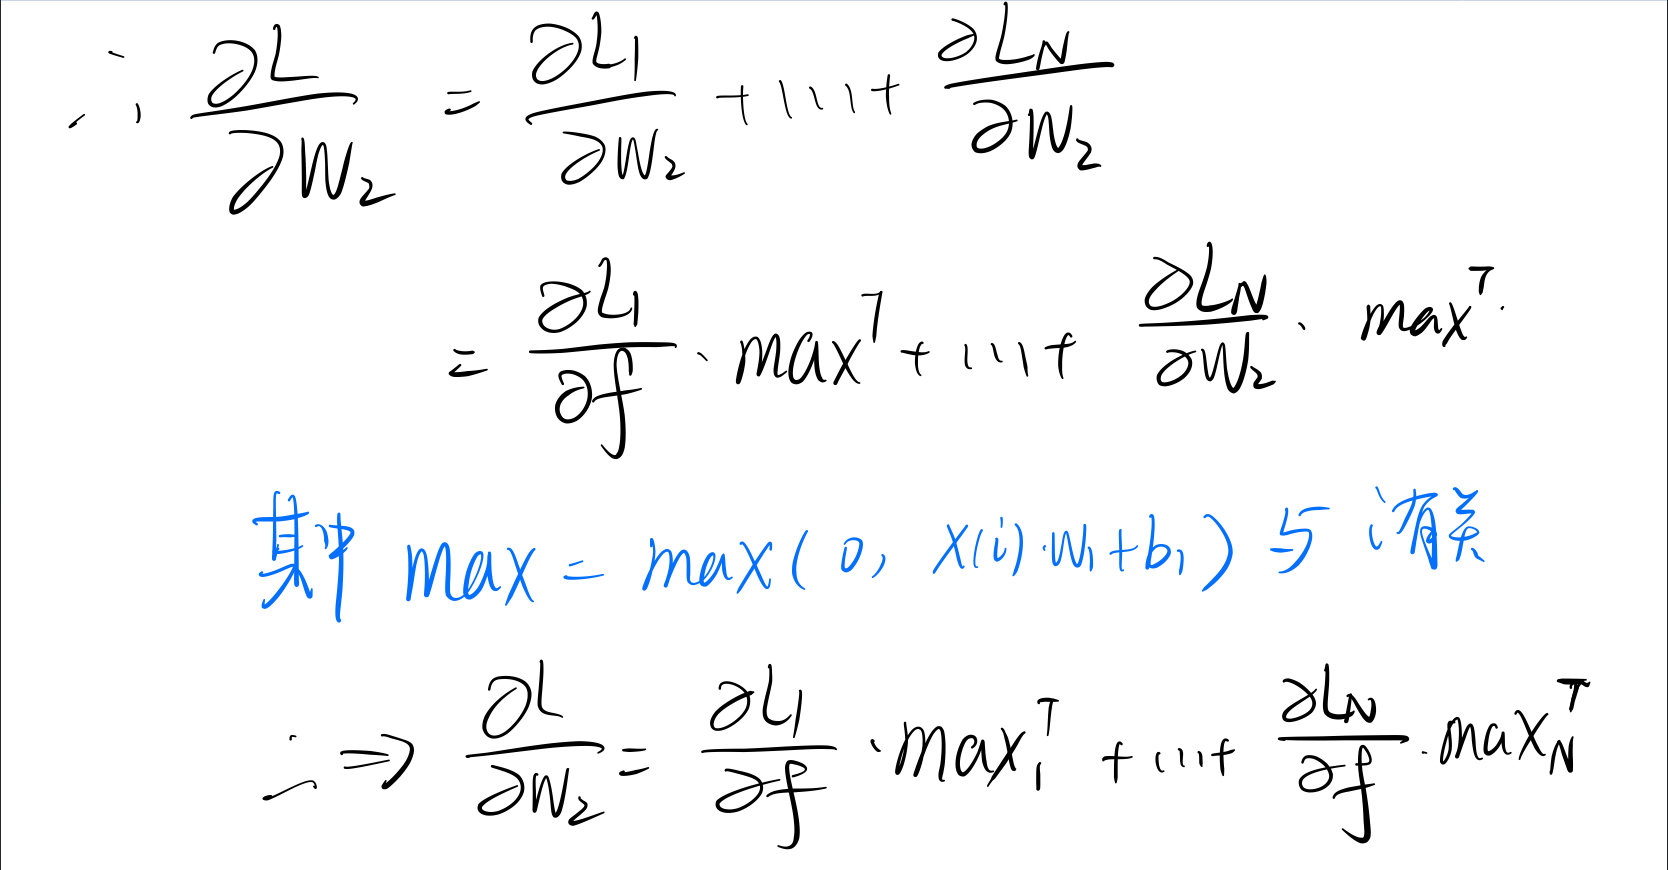 ∴ ∂L/∂W₂ = ∂L₁/∂W₂ + ··· + ∂L_N/∂W₂
= ∂L₁/∂f · max^T + ··· + ∂L_N/∂W₂ · max^T
其中 max = max(0, X(i)·W₁+b₁) 与 i有关
∴ ⇒ ∂L/∂W₂ = ∂L₁/∂f · max₁^T + ··· + ∂L_N/∂f · max_N^T